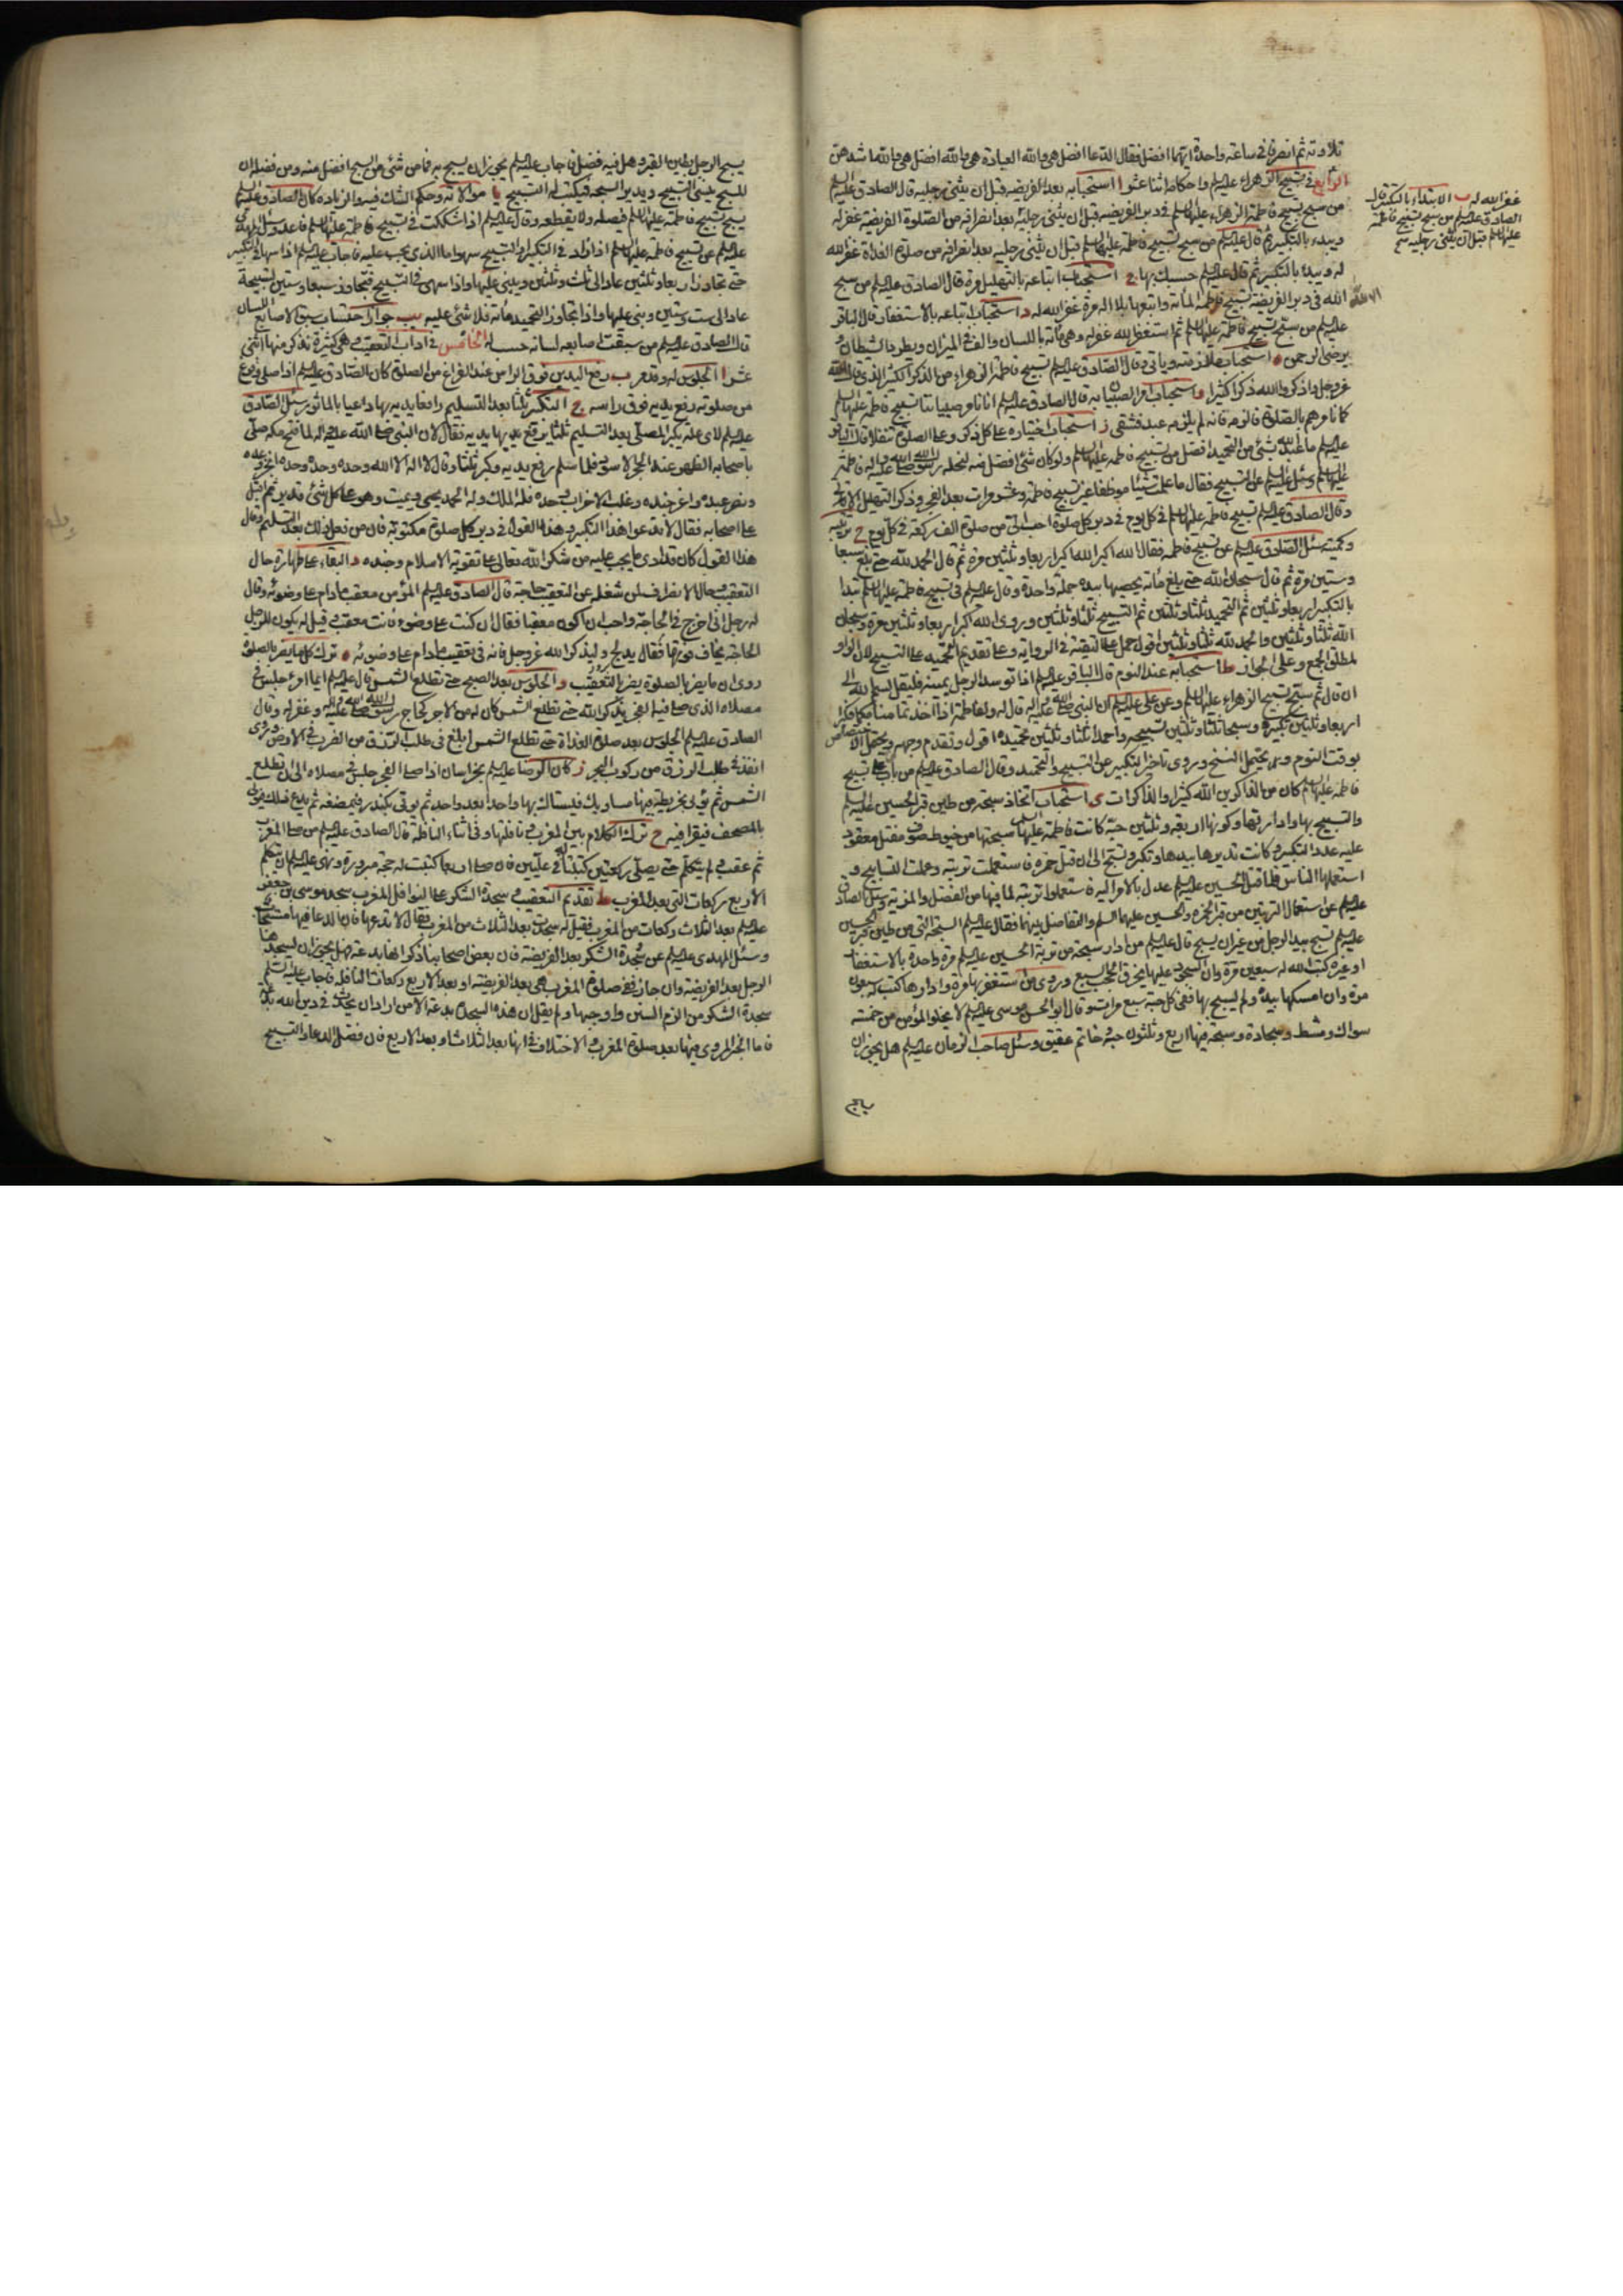 تلاوته ثم انصرفا في ساعة واحدة ايهما افضل فقال الدعا افضل هي والله العبادة هي والله افضل هي والله اشدهن
الرابع في تسبيح الزهراء عليها السلم واحكامه اثنا عشر ا استحبابه بعد الفريضة قبل ان يثني رجليه قال الصادق عليه السلم
من سبح تسبيح فاطمة الزهراء عليها السلم في دبر الفريضة قبل ان يثني رجليه بعد انصرافه من الصلوة الفريضة غفر له
ويبدء بالتكبير ثم قال عليه السلم من سبح تسبيح فاطمة عليها السلم قبل ان يثني رجليه بعد انصرافه من صلوة الغداة غفر الله
له ويبدء بالتكبير ثم قال عليه السلم حسبك بها ج استحباب اتباعه بالتهليل مرة قال الصادق عليه السلم من سبح
الله في دبر الفريضة تسبيح فاطمة المائة واتبعها بلا اله مرة غفر الله له د استحباب اتباعه بالاستغفار قال الباقر
عليه السلم من سبح تسبيح فاطمة عليها السلم ثم استغفر الله غفر له وهي مائة باللسان والف في الميزان ويطرد الشيطان و
يرضي الرحمن ه استحباب ملازمته وياتي وقال الصادق عليه السلم تسبيح فاطمة الزهراء من الذكر الكثير الذي قال الله
عز وجل واذكروا الله ذكرا كثيرا و استحباب امر الصبيان به قال الصادق عليه السلم انا نامر صبياننا بتسبيح فاطمة عليها السلم
كما نامرهم بالصلوة فالزمه فانه لم يلزمه عبد فشقي ز استحباب اختياره على كل ذكر وعلى الصلوة تنفلا قال الباقر
عليه السلم ما عبد الله بشئ من التحميد افضل من تسبيح فاطمة عليها السلم ولو كان شئ افضل منه لنحله رسول الله صلى الله عليه واله فاطمة
عليها السلم وسئل عليه السلم عن التسبيح فقال ما علمت شيئا موظفا غير تسبيح فاطمة وعشر مرات بعد الفجر وذكر التهليل
وقال الصادق عليه السلم تسبيح فاطمة عليها السلم في كل يوم في دبر كل صلوة احب الي من صلوة الف ركعة في كل يوم ح ترتيبه
وكميته سئل الصادق عليه السلم عن تسبيح فاطمة فقال الله اكبر الله اكبر اربعا وثلثين مرة ثم قال الحمد لله حتى بلغ سبعا
وستين مرة ثم قال سبحان الله حتى بلغ مائة يحصيها بيده جملة واحدة وقال عليه السلم في تسبيح فاطمة عليها السلم تبدا
بالتكبير اربعا وثلثين ثم التحميد ثلثا وثلثين ثم التسبيح ثلثا وثلثين وروى الله اكبر اربعا وثلثين مرة وسبحان
الله ثلثا وثلثين والحمد لله ثلثا وثلثين اقول حمل على التقية في الرواية وعلى تقديم التحميد على التسبيح لان الواو
لمطلق الجمع وعلى الجواز ط استحبابه عند النوم قال الباقر عليه السلم اذا توسد الرجل يمينه فليقل بسم الله الى
ان قال ثم يسبح تسبيح الزهراء عليها السلم وعن علي عليه السلم ان النبي صلى الله عليه واله قال له ولفاطمة اذا اخذتما منامكما فكبرا
اربعا وثلثين تكبيرة وسبحا ثلثا وثلثين تسبيحة واحمدا ثلثا وثلثين تحميدة اقول وتقدم وجهه ويحتمل الاختصاص
بوقت النوم ويحتمل النسخ وروى تاخير التكبير عن التسبيح والتحميد وقال الصادق عليه السلم من بات على تسبيح
فاطمة عليها السلم كان من الذاكرين الله كثيرا والذاكرات ى استحباب اتخاذ سبحة من طين قبر الحسين عليه السلم
والتسبيح بها وادارتها وكونها اربعة وثلثين حبة كانت فاطمة عليها السلم سبحتها من خيط صوف مفتل معقود
عليه عدد التكبير وكانت تديرها بيدها وتكبر وتسبح الى ان قتل حمزة فاستعملت تربته وعملت التسابيح و
استعملها الناس فلما قتل الحسين عليه السلم عدل بالامر اليه فاستعملوا تربته لما فيها من الفضل والمزية وسئل الصادق
عليه السلم عن استعمال التربتين من قبر حمزة والحسين عليهما السلم والتفاضل بينهما فقال عليه السلم السبحة التي من طين قبر الحسين
عليه السلم تسبح بيد الرجل من غير ان يسبح قال عليه السلم من ادار سبحة من تربة الحسين عليه السلم مرة واحدة بالاستغفار
او غيره كتب الله له سبعين مرة وان السجود عليها يخرق الحجب السبع وروى من استغفر بها مرة وادارها كتب له سبعون
مرة وان امسكها بيده ولم يسبح بها ففي كل حبة سبع مرات وقال ابو الحسن موسى عليه السلم لا يخلو المؤمن من خمسة
سواك ومشط وسجادة وسبحة فيها اربع وثلثون حبة وخاتم عقيق وسئل صاحب الزمان عليه السلم هل يجوز ان
غفر الله له ب الابتداء بالتكبير قال
الصادق عليه السلم من سبح تسبيح فاطمة
عليها السلم قبل ان يثني رجليه
الا الله
يسبح الرجل بطين القبر وهل فيه فضل فاجاب عليه السلم يجوز ان يسبح به فما من شئ من السبح افضل منه ومن فضله ان
المسبح ينسى التسبيح ويدير السبحة فيكتب له التسبيح يا موالاته وحكم الشك فيه والزيادة كان الصادق عليه السلم
يسبح تسبيح فاطمة عليها السلم فيصله ولا يقطعه وقال عليه السلم اذا شككت في تسبيح فاطمة عليها السلم فاعد وسئل المهدي
عليه السلم عن تسبيح فاطمة عليها السلم اذا زاد في التكبير او التسبيح سهوا ما الذي يجب عليه فاجاب عليه السلم اذا سها في التكبير
حتى تجاوز اربعا وثلثين عاد الى ثلث وثلثين ويبني عليها واذا سهى في التسبيح فتجاوز سبعا وستين تسبيحة
عاد الى ست وستين وبنى عليها واذا تجاوز التحميد مائة فلا شئ عليه يب جواز احتساب سبق الاصابع اللسان
قال الصادق عليه السلم من سبقت اصابعه لسانه حسب له الخامس في اداب التعقيب وهي كثيرة نذكر منها اثني
عشر ا الجلوس له وقد مر ب رفع اليدين فوق الراس عند الفراغ من الصلوة كان الصادق عليه السلم اذا صلى وفرغ
من صلوته رفع يديه فوق راسه ج التكبير ثلثا بعد التسليم رافعا يديه بها داعيا بالماثور سئل الصادق
عليه السلم لاي علة يكبر المصلي بعد التسليم ثلثا يرفع بها يديه فقال لان النبي صلى الله عليه واله لما فتح مكة صلى
باصحابه الظهر عند الحجر الاسود فلما سلم رفع يديه وكبر ثلثا وقال لا اله الا الله وحده وحده وحده انجز وعده
ونصر عبده واعز جنده وغلب الاحزاب وحده فله الملك وله الحمد يحيي ويميت وهو على كل شئ قدير ثم اقبل
على اصحابه فقال لا تدعوا هذا التكبير وهذا القول في دبر كل صلوة مكتوبة فان من فعل ذلك بعد التسليم وقال
هذا القول كان قد ادى ما يجب عليه من شكر الله تعالى على تقوية الاسلام وجنده د البقاء على طهارة حال
التعقيب وحال الانصراف لمن شغله عن التعقيب حاجة قال الصادق عليه السلم المؤمن معقب ما دام على وضوئه وقال
له رجل اني اخرج في الحاجة واحب ان اكون معقبا فقال ان كنت على وضوء فانت معقب وقيل له يكون للرجل
الحاجة يخاف فوتها فقال يدلج وليذكر الله عز وجل فانه في تعقيب ما دام على وضوئه ه ترك كل ما يضر بالصلوة
روى ان ما يضر بالصلوة يضر بالتعقيب و الجلوس بعد الصبح حتى تطلع الشمس قال عليه السلم ايما امرء جلس في
مصلاه الذي صلى فيه الفجر يذكر الله حتى تطلع الشمس كان له من الاجر كحاج رسول الله صلى الله عليه واله وغفر له وقال
الصادق عليه السلم الجلوس بعد صلوة الغداة حتى تطلع الشمس ابلغ في طلب الرزق من الضرب في الارض وروى
انفذ في طلب الرزق من ركوب البحر ز كان الرضا عليه السلم بخراسان اذا صلى الفجر جلس في مصلاه الى ان تطلع
الشمس ثم يؤتى بخريطة فيها مساويك فيستاك بها واحدا بعد واحد ثم يؤتى بكندر فيمضغه ثم يدع ذلك فيؤتى
بالمصحف فيقرا فيه ح ترك الكلام بين المغرب ونافلتها وفي اثناء النافلة قال الصادق عليه السلم من صلى المغرب
ثم عقب ولم يتكلم حتى يصلي ركعتين كتبتا له في عليين فان صلى اربعا كتبت له حجة مبرورة ونهى عليه السلم ان يتكلم
الاربع ركعات التي بعد المغرب ط تقديم التعقيب على سجدة الشكر وعلى نوافل المغرب سجد موسى بن جعفر
عليه السلم بعد الثلاث ركعات من المغرب فقيل له سجدت بعد الثلاث من المغرب فقال لا تدعها فان الدعا فيها مستجاب
وسئل المهدي عليه السلم عن سجدة الشكر بعد الفريضة فان بعض اصحابنا ذكر انها بدعة فهل يجوز ان يسجدها
الرجل بعد الفريضة وان جاز ففي صلوة المغرب هي بعد الفريضة او بعد الاربع ركعات النافلة فاجاب عليه السلم
سجدة الشكر من الزم السنن واوجبها ولم يقل ان هذه السجدة بدعة الا من اراد ان يحدث في دين الله بدعة
فاما الخبر المروي فيها بعد صلوة المغرب والاختلاف في انها بعد الثلاث او بعد الاربع فان فضل الدعاء والتسبيح